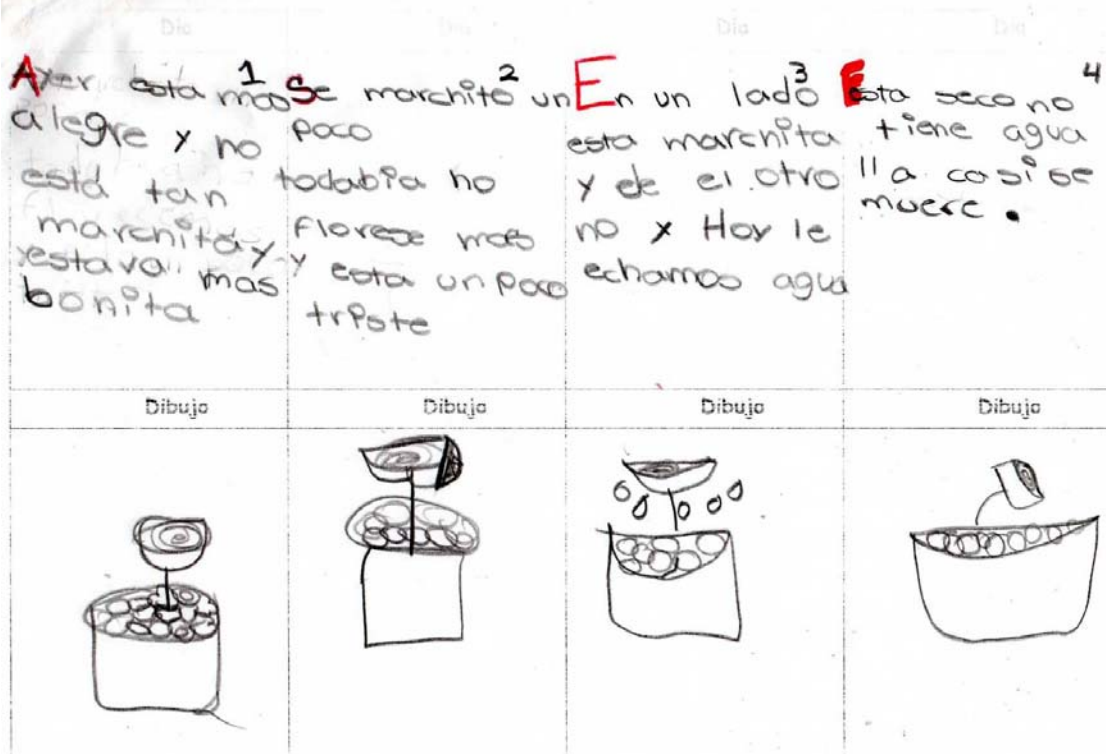 Día Día Día Día
1
Axer esta mas
alegre y no
está tan
marchita y
estava mas
bonita
2
Se marchito un
poco
todabia no
florese mas
y esta un poco
triste
3
En un lado
esta marchita
y de el otro
no y Hoy le
echamos agua
4
Esta seco no
tiene agua
lla casi se
muere.
Dibujo Dibujo Dibujo Dibujo